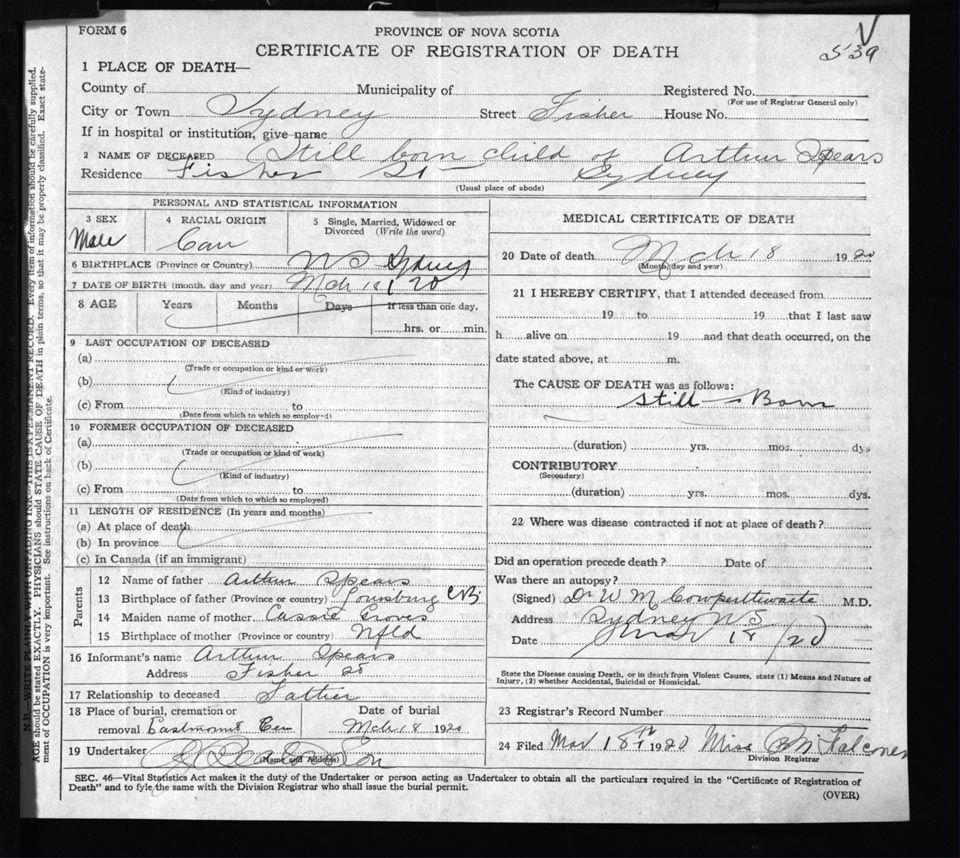 FORM 6
PROVINCE OF NOVA SCOTIA
CERTIFICATE OF REGISTRATION OF DEATH
539
1 PLACE OF DEATH—
County of Municipality of Registered No.
(For use of Registrar General only)
City or Town Sydney Street Fisher House No.
If in hospital or institution, give name
2 NAME OF DECEASED Still born child of Arthur Spears
Residence Fisher St Sydney
(Usual place of abode)
PERSONAL AND STATISTICAL INFORMATION
3 SEX 4 RACIAL ORIGIN 5 Single, Married, Widowed or Divorced (Write the word)
Male Can
6 BIRTHPLACE (Province or Country) NS Sydney
7 DATE OF BIRTH (month, day and year) Mch 18 / 20
8 AGE Years Months Days If less than one day,
hrs. or min.
9 LAST OCCUPATION OF DECEASED
(a)
(Trade or occupation or kind or work)
(b)
(Kind of industry)
(c) From to
(Date from which to which so employed)
10 FORMER OCCUPATION OF DECEASED
(a)
(Trade or occupation or kind of work)
(b)
(Kind of industry)
(c) From to
(Date from which to which so employed)
11 LENGTH OF RESIDENCE (In years and months)
(a) At place of death
(b) In province
(c) In Canada (if an immigrant)
Parents
12 Name of father Arthur Spears
13 Birthplace of father (Province or country) Louisburg C.B.
14 Maiden name of mother Cassie
15 Birthplace of mother (Province or country) Nfld
16 Informant's name Arthur Spears
Address Fisher St
17 Relationship to deceased Father
18 Place of burial, cremation or removal Eastmount Cem
Date of burial Mch 18 1920
19 Undertaker
(Name and Address)
MEDICAL CERTIFICATE OF DEATH
20 Date of death Mch 18 1920
(Month, day and year)
21 I HEREBY CERTIFY, that I attended deceased from
19 to 19 that I last saw
h alive on 19 and that death occurred, on the
date stated above, at m.
The CAUSE OF DEATH was as follows:
Still—Born
(duration) yrs. mos. dys
CONTRIBUTORY
(Secondary)
(duration) yrs. mos. dys.
22 Where was disease contracted if not at place of death?
Did an operation precede death? Date of
Was there an autopsy?
(Signed) Dr W M Cowperthwaite M.D.
Address Sydney NS
Date Mar 18/20
State the Disease causing Death, or in death from Violent Causes, state (1) Means and Nature of
Injury, (2) whether Accidental, Suicidal or Homicidal.
23 Registrar's Record Number
24 Filed Mar 18th 1920 Miss Falconer
Division Registrar
SEC. 46—Vital Statistics Act makes it the duty of the Undertaker or person acting as Undertaker to obtain all the particulars required in the "Certificate of Registration of
Death" and to fyle the same with the Division Registrar who shall issue the burial permit.
(OVER)
N.B.—WRITE PLAINLY WITH UNFADING INK—THIS IS A PERMANENT RECORD. Every item of information should be carefully supplied.
AGE should be stated EXACTLY. PHYSICIANS should STATE CAUSE OF DEATH in plain terms, so that it may be properly classified. Exact state-
ment of OCCUPATION is very important. See instructions on back of Certificate.